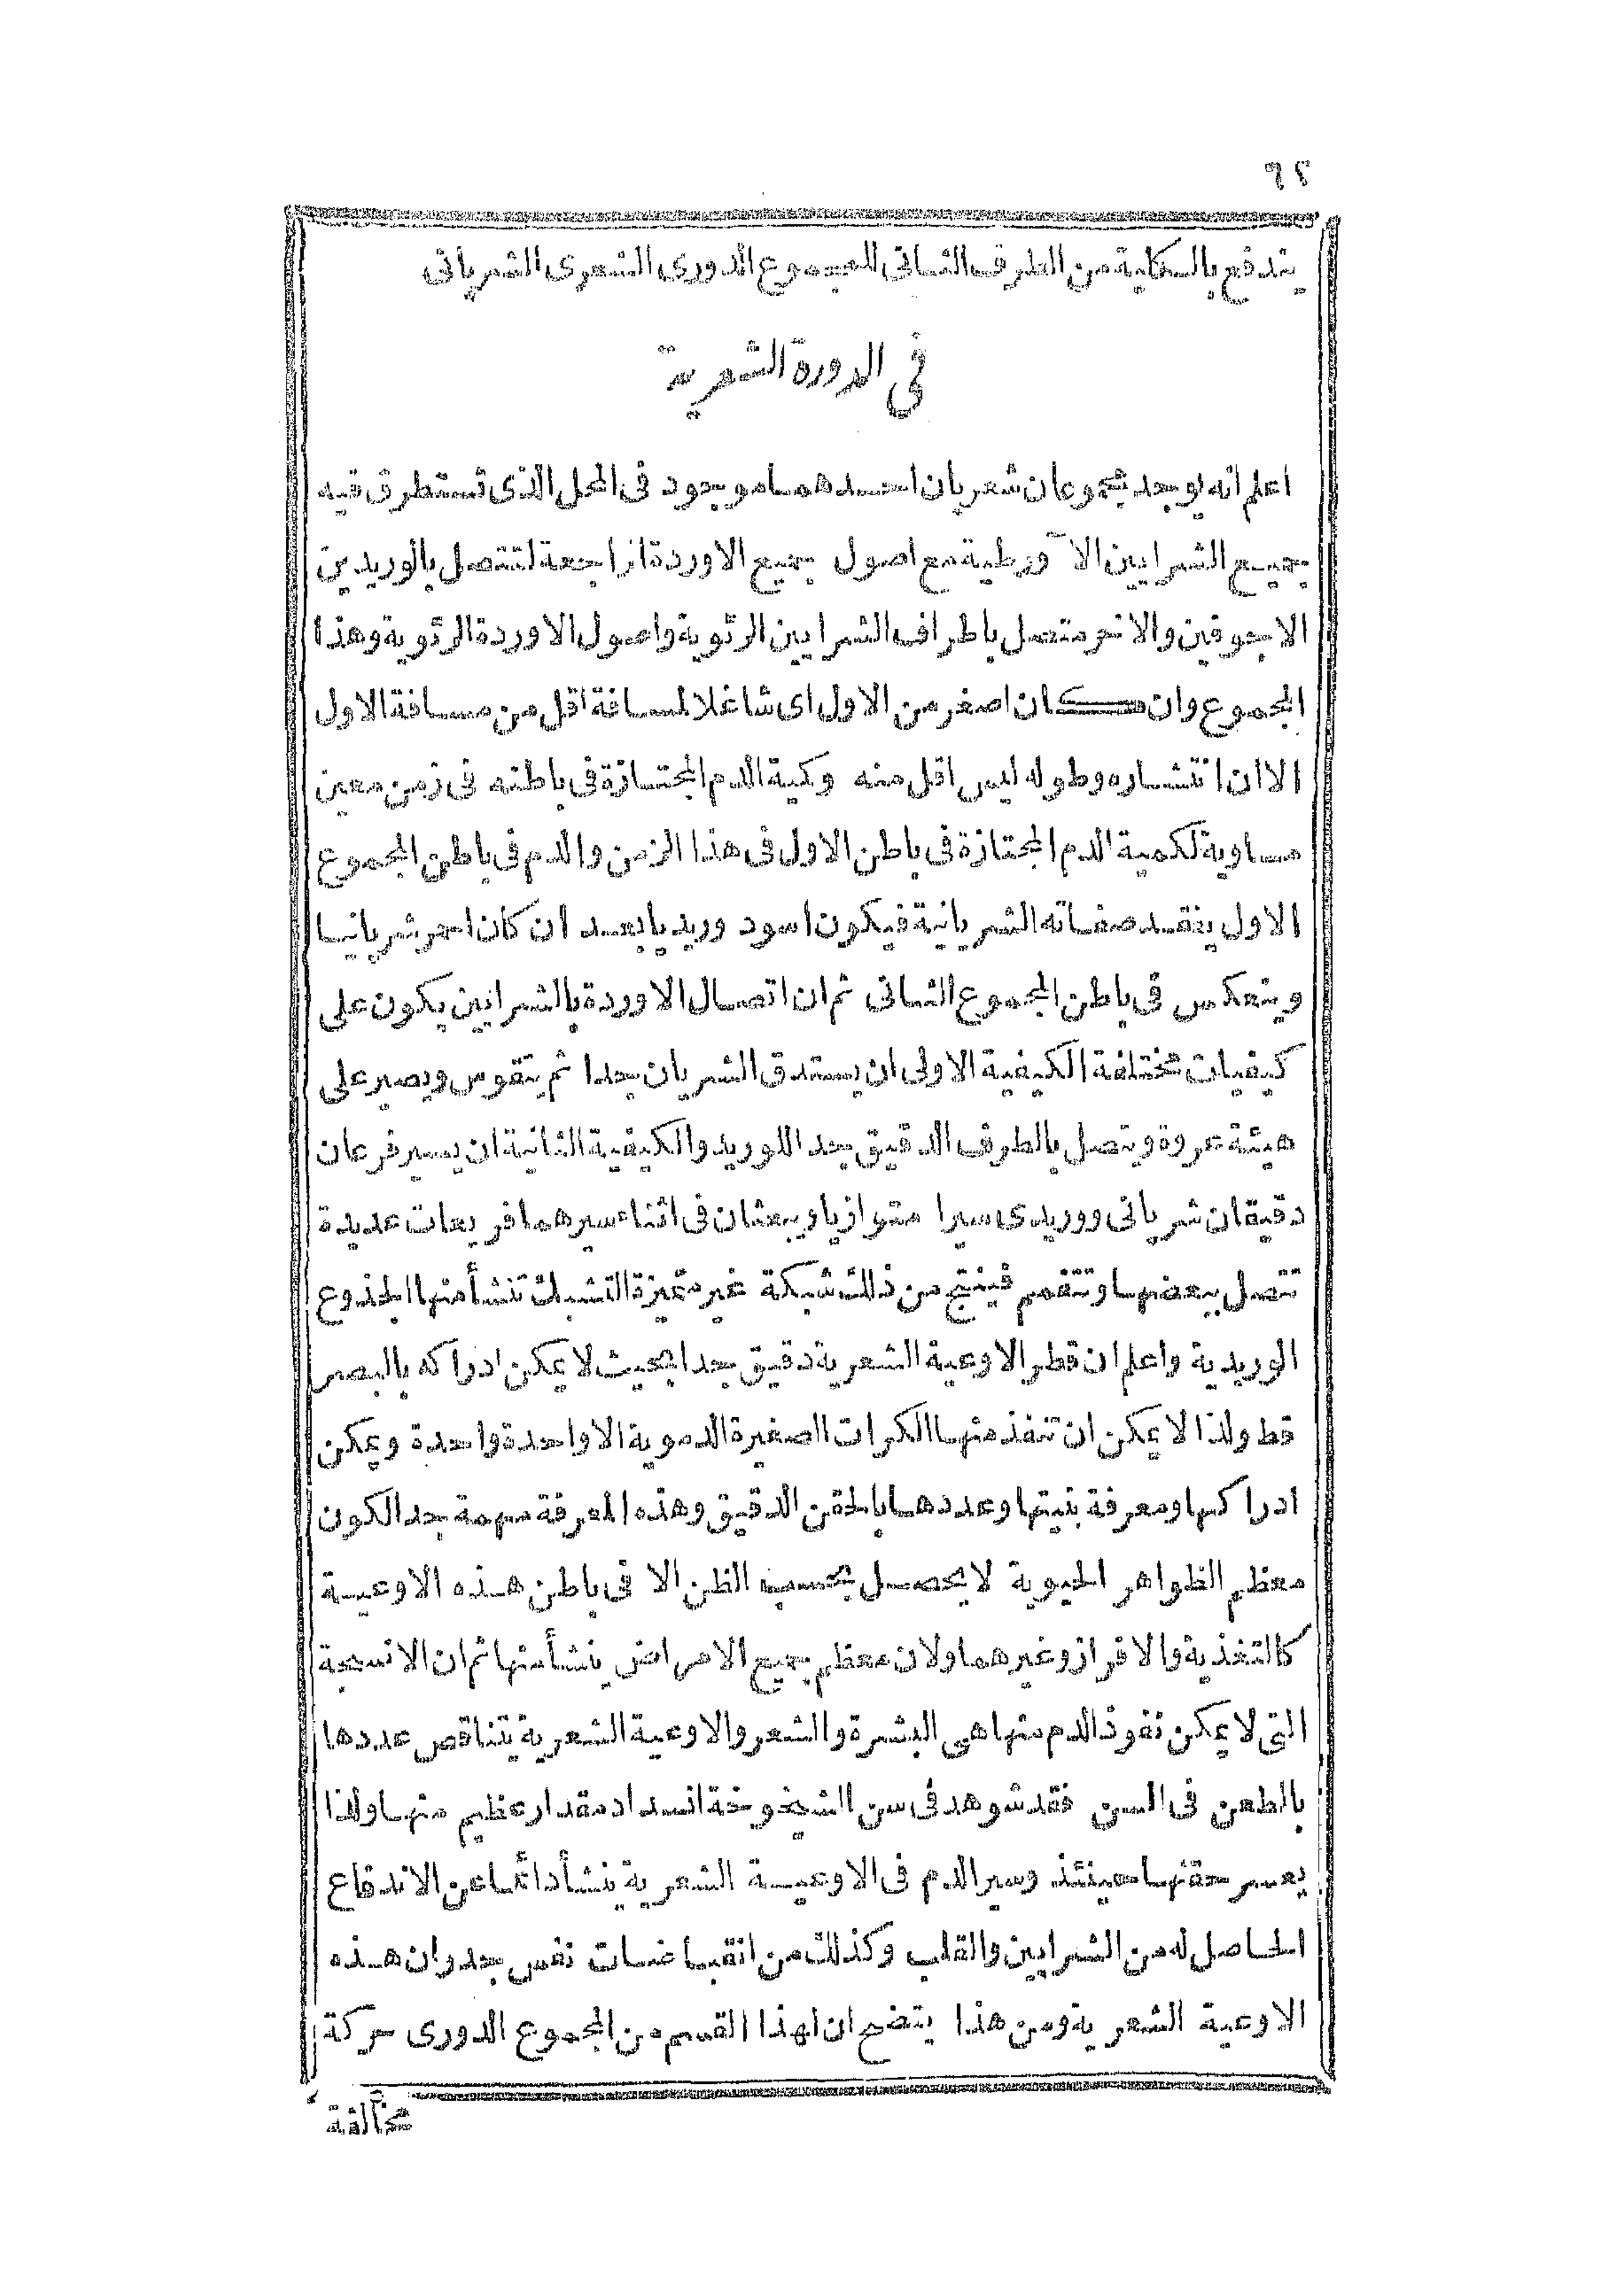 ٩٢
يندفع بالكلية من الطرف الثانى للمجموع الدورى الشعرى الشريانى
فى الدورة الشعرية
اعلم انه يوجد مجموعان شعريان احدهما موجود فى المحل الذى تستطرق فيه
جميع الشرايين الآورطية مع اصول جميع الاوردة الراجعة لتتصل بالوريدين
الاجوفين والاخر متصل باطراف الشرايين الرئوية واصول الاوردة الرئوية وهذا
المجموع وان كان اصغر من الاول اى شاغلا لمسافة اقل من مسافة الاول
الاان انتشاره وطوله ليس اقل منه وكمية الدم المجتازة فى باطنه فى زمن معين
مساوية لكمية الدم المجتازة فى باطن الاول فى هذا الزمن والدم فى باطن المجموع
الاول يفقد صفاته الشريانية فيكون اسود وريديا بعد ان كان احمر شريانيا
وينعكس فى باطن المجموع الثانى ثم ان اتصال الاوردة بالشرايين يكون على
كيفيات مختلفة الكيفية الاولى ان يستدق الشريان جدا ثم يتقوس ويصير على
هيئة عروة ويتصل بالطرف الدقيق جدا للوريد والكيفية الثانية ان يسير فرعان
دقيقان شريانى ووريدى سيرا متوازيا ويبعثان فى اثناء سيرهما فريعات عديدة
تتصل ببعضها وتتفمم فينتج من ذلك شبكة غير متميزة التشبك تنشأ منها الجذوع
الوريدية واعلم ان قطر الاوعية الشعرية دقيق جدا بحيث لا يمكن ادراكه بالبصر
قط ولذا لا يمكن ان تنفذ منها الكرات الصغيرة الدموية الا واحدة واحدة ويمكن
ادراكها ومعرفة بنيتها وعددها بالحقن الدقيق وهذه المعرفة مهمة جدا لكون
معظم الظواهر الحيوية لا يحصل بحسب الظن الا فى باطن هذه الاوعية
كالتغذية والافراز وغيرهما ولان معظم جميع الامراض ينشأ منها ثم ان الانسجة
التى لا يمكن نفوذ الدم منها هى البشرة والشعر والاوعية الشعرية يتناقص عددها
بالطعن فى السن فقد شوهد فى سن الشيخوخة انسداد مقدار عظيم منها ولذا
يعسر حقنها حينئذ وسير الدم فى الاوعية الشعرية ينشأ دائما عن الاندفاع
الحاصل له من الشرايين والقلب وكذلك من انقباضات نفس جدوان هذه
الاوعية الشعرية ومن هذا يتضح ان لهذا القسم من المجموع الدورى حركة
مخالفة